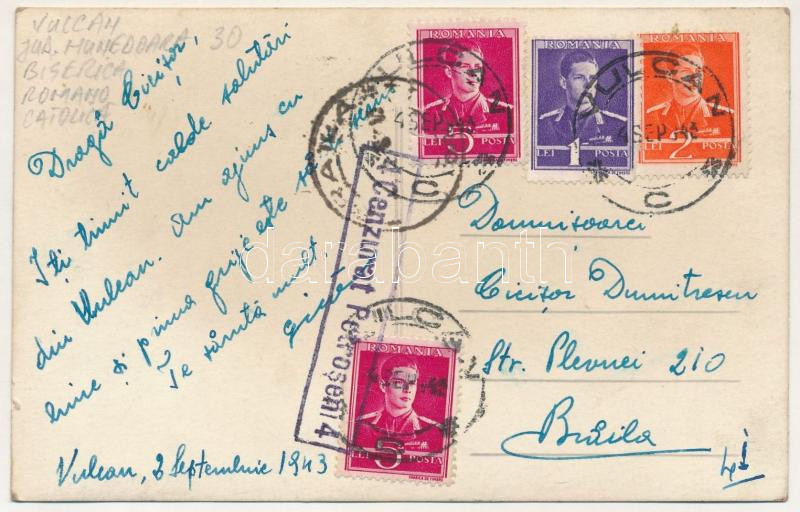 VULCAN
JUD. HUNEDOARA 30
BISERICA
ROMANO
CATOLICA
Dragă Cicișor,
Iți trimit calde salutări
din Vulcan. Am ajuns cu
bine și prima grije este să-ți scriu
Te sărută mult,
Vulcan, 2 Septembrie 1943
ROMANIA
5 LEI POSTA
ROMANIA
LEI 1 POSTA
ROMANIA
LEI 2 POSTA
VULCAN
4 SEP. 943
VULCAN
4 SEP. 943
Cenzurat Petroșeni 4
VULCAN
ROMANIA
LEI 5 POSTA
Domnișoarei
Cicișor Dumitrescu
Str. Plevnei 210
Brăila
darabanth